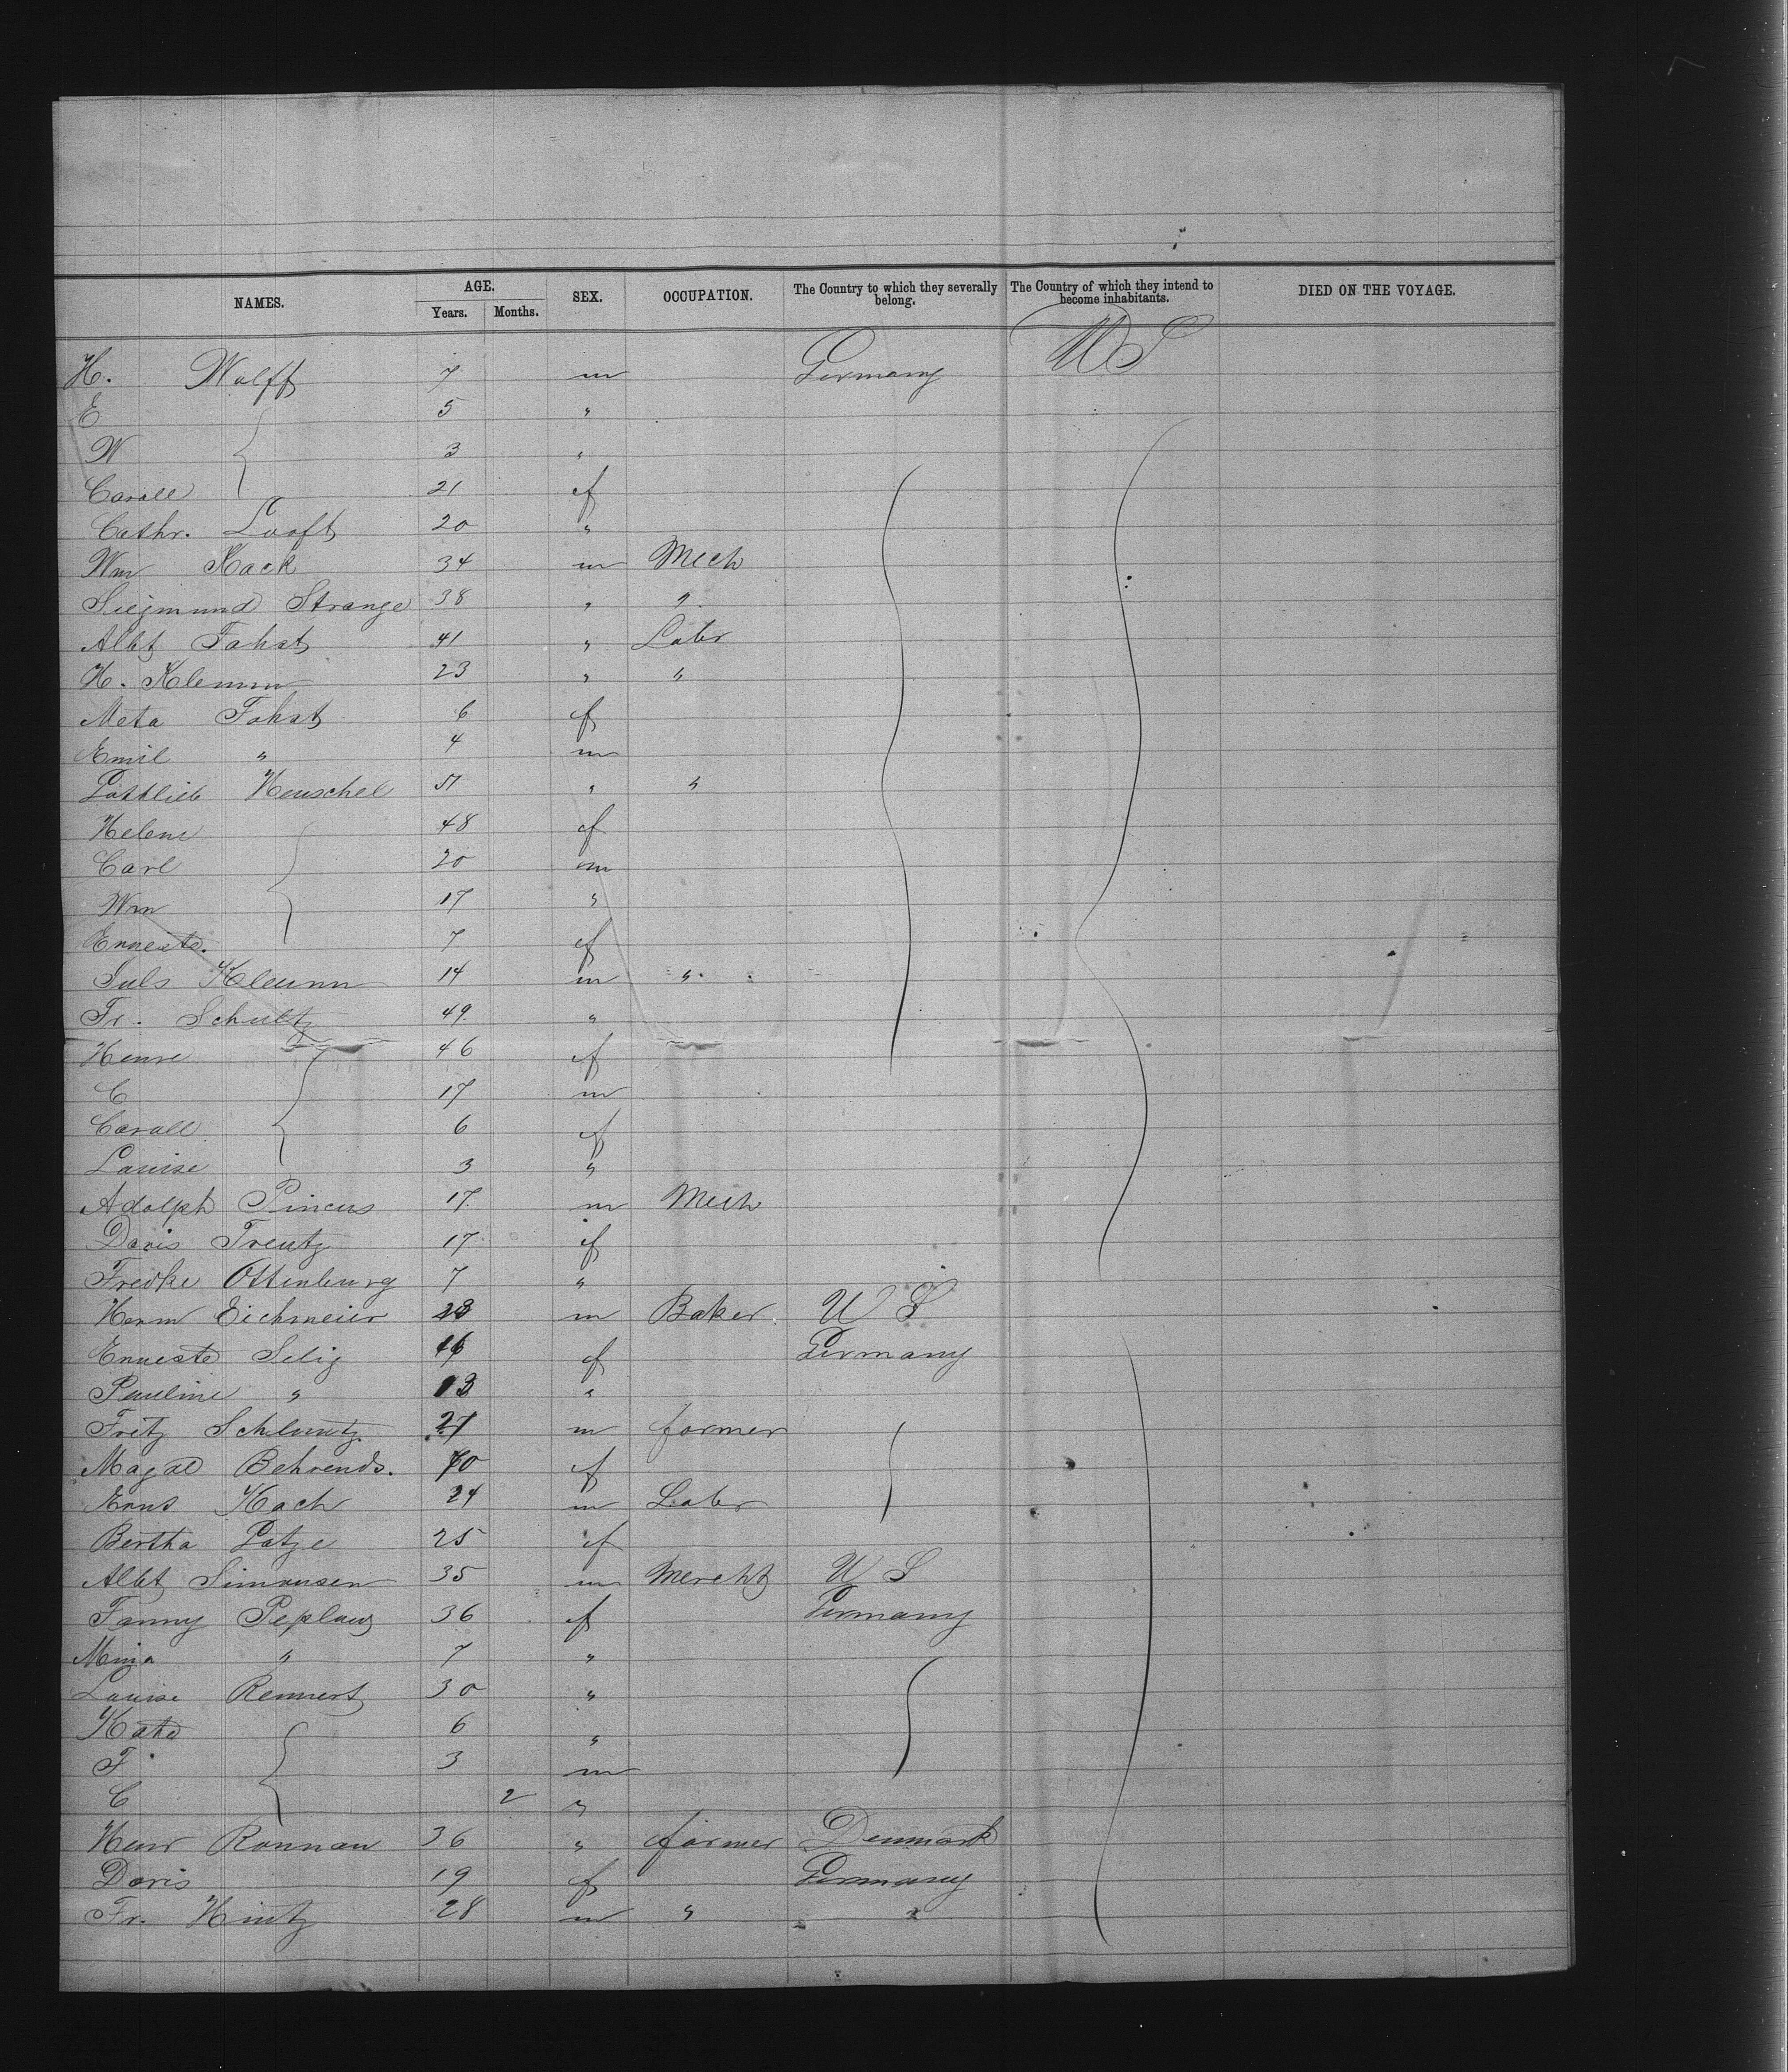 NAMES. AGE. SEX. OCCUPATION. The Country to which they severally belong. The Country of which they intend to become inhabitants. DIED ON THE VOYAGE.
Years. Months.
H. Wolff 7 m Germany U S
E 5 "
W 3 "
Caroll 21 f
Cathr. Looft 20 "
Wm Kack 34 m Mech
Siegmund Strange 38 " "
Albt Fahst 41 " Labr
H. Klemm 23 " "
Meta Fahst 6 f
Emil " 4 m
Gottlieb Henschel 51 " "
Helene 48 f
Carl 20 m
Wm 17 "
Erneste. 7 f
Juls Klemm 14 m "
Fr. Schultz 49 "
Henre 46 f
C 17 m
Caroll 6 f
Louise 3 "
Adolph Pincus 17 m Mech
Doris Trentz 17 f
Fredke Ottenburg 7 "
Herm Eichmeier 28 m Baker U S
Erneste Selig f Germany
Pauline " "
Fritz Schluntz 27 m farmer
Magde Behrends. f
Erns Koch 24 m Labr
Bertha Gatze 25 f
Albt Simonsen 35 m Mercht U S
Fanny Peplau 36 f Germany
Mina " 7 "
Louise Rennert 30 "
Kate 6 "
F. 3 m
C 2 "
Henr Ronnau 36 " farmer Denmark
Doris 19 f Germany
Fr. Hintz 28 m " " "